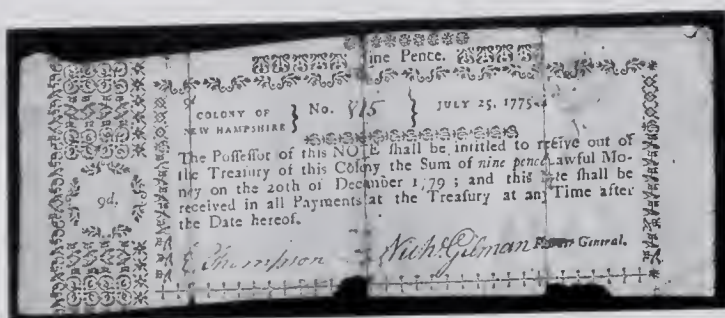 ine Pence.
COLONY OF NEW HAMPSHIRE } No. 815 } JULY 25, 1775.
The Poſſeſſor of this NOTE ſhall be intitled to receive out of
the Treaſury of this Colony the Sum of nine pence Lawful Mo-
ney on the 20th of December 1779 ; and this ſhall be
received in all Payments at the Treaſury at any Time after
the Date hereof.
9d.
E Thompson Nichs. Gilman General.